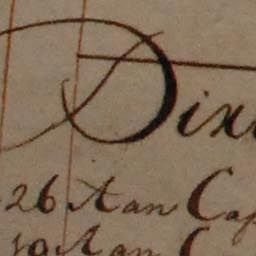 Dix
26 Aan Cap
10 Aan C